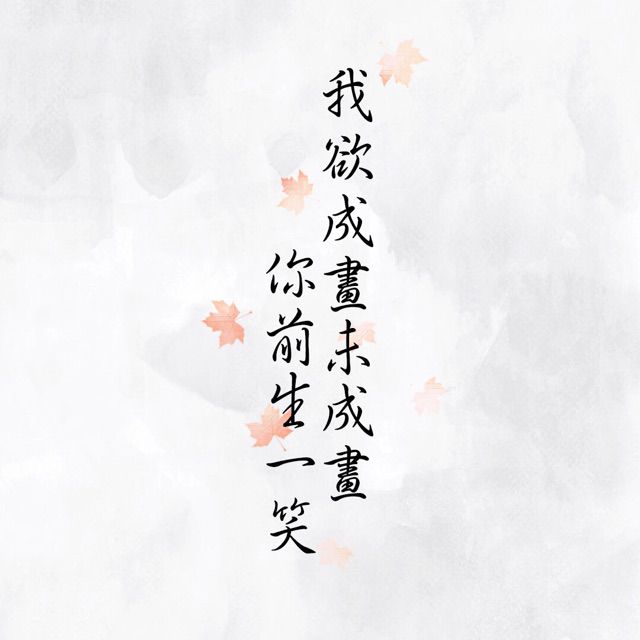 我欲成畫未成畫
你前生一笑